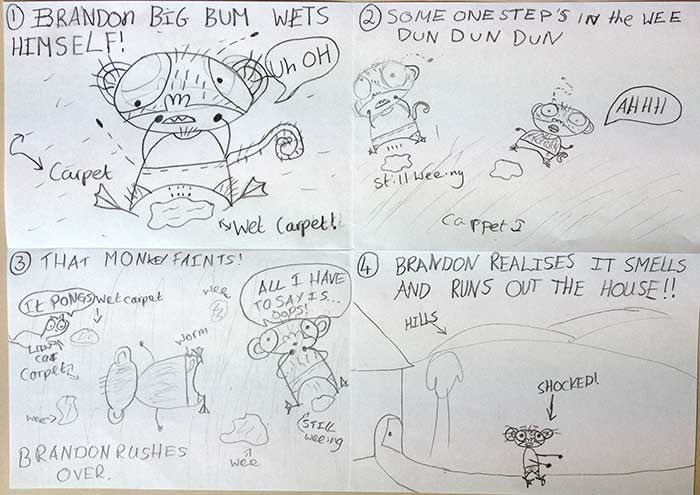 ① BRANDON BIG BUM WETS
HIMSELF!
Uh OH
Carpet
Wet Carpet!
② SOME ONE STEP'S IN the WEE
DUN DUN DUN
AHHH
still weeing
Carpet
③ THAT MONKEY FAINTS!
IT PONGS
wet carpet
wee
ALL I HAVE
TO SAY IS...
OOPS!
worm
cat
Carpet
wee
STILL
weeing
wee
BRANDON RUSHES
OVER.
④ BRANDON REALISES IT SMELLS
AND RUNS OUT THE HOUSE!!
HILLS
SHOCKED!